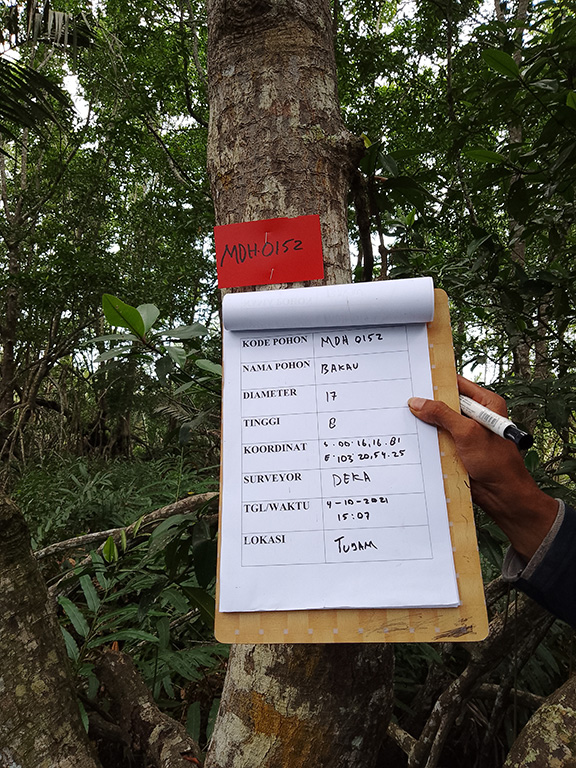 MDH 0152
KODE POHON MDH 0152
NAMA POHON BAKAU
DIAMETER 17
TINGGI 8
KOORDINAT S. 00. 16, 16. 81
E. 103. 20, 54. 25
SURVEYOR DEKA
TGL/WAKTU 4-10-2021
15:07
LOKASI